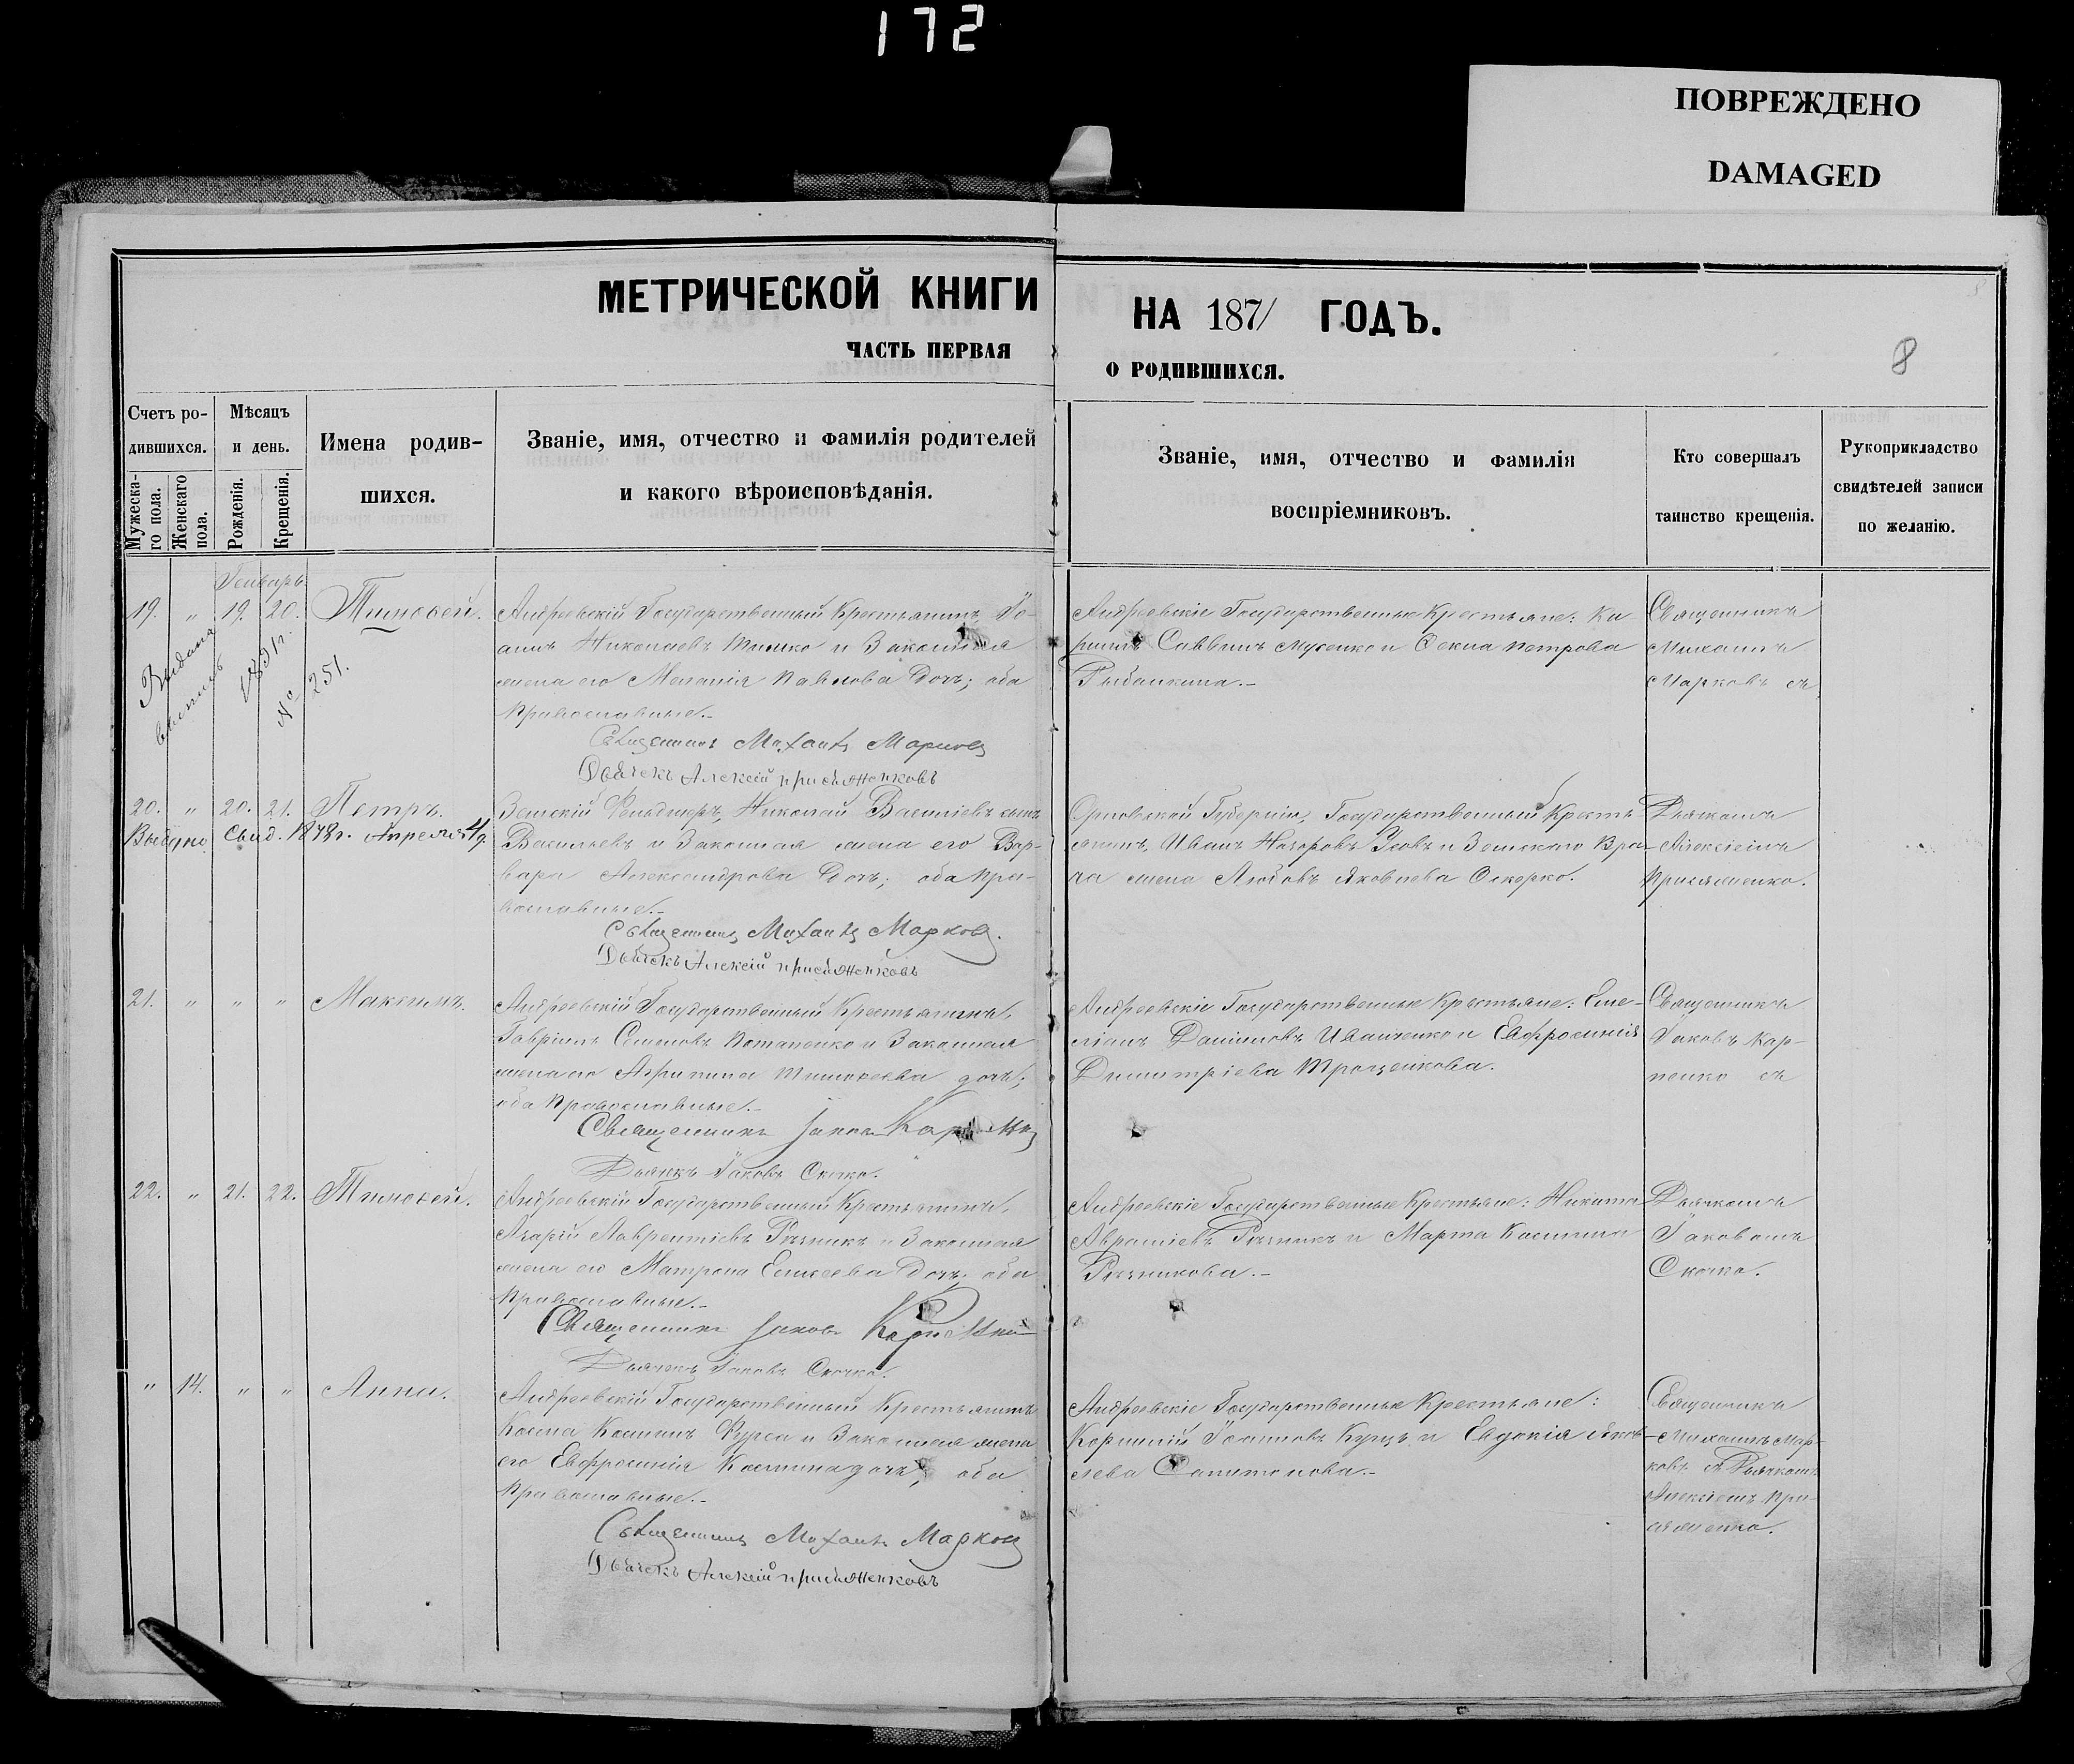 172
ПОВРЕЖДЕНО
DAMAGED
МЕТРИЧЕСКОЙ КНИГИ НА 1871 ГОДЪ.
ЧАСТЬ ПЕРВАЯ О РОДИВШИХСЯ.
8
Счетъ ро-
дившихся.
Мужеска-
го пола.
Женскаго
пола.
Мѣсяцъ
и день.
Рожденія.
Крещенія.
Имена родив-
шихся.
Званіе, имя, отчество и фамилія родителей
и какого вѣроисповѣданія.
Званіе, имя, отчество и фамилія
воспріемниковъ.
Кто совершалъ
таинство крещенія.
Рукоприкладство
свидѣтелей записи
по желанію.
Генварь
19. " 19. 20. Тимоѳей.
Выдана
1891 г.
№ 251.
Андреевскій Государственный Крестьянинъ Іо-
аннъ Николаевъ Тимко и Законная
жена его Меланія Павлова Дочь; оба
Православные.-
Священникъ Михаилъ Марковъ
Дьячекъ Алексій
Андреевскіе Государственные Крестьяне: Ки
рилъ Саввинъ Мусенко и Ѳекла Петрова
Рыбалкина.-
Священникъ
Михаилъ
Марковъ съ
20. " 20. 21. Петръ.
Выдано свид. 1878 г. Апреля 4 д.
Земскій Фельдшеръ, Николай Василіевъ сынъ
Васильевъ и Законная жена его Вар-
вара Александрова Дочь; оба Пра-
вославные.-
Священникъ Михаилъ Марковъ.
Дьячекъ Алексій
Орловской Губерніи, Государственный Кресть
янинъ, Иванъ Назоровъ Усовъ и Земскаго Вра-
ча жена Любовь Яковлева Оскерко.
Дьячкомъ
Алексіемъ
21. " " " Максимъ.
Андреевскій Государственный Крестьянинъ,
Гавріилъ Семеновъ Потапенко и Законная
жена его Агрипина Тимоѳеева дочь;
оба Православные.-
Священникъ Іаковъ
Дьячекъ Іаковъ Скочко.
Андреевскіе Государственные Крестьяне: Еме-
ліанъ Даніиловъ Иванченко и Евфросинія
Димитріева Троценкова.
Священникъ
Іаковъ Кар-
пенко съ
22. " 21. 22. Тимоѳей.
Андреевскій Государственный Крестьянинъ,
Азарій Лаврентіевъ Рѣзникъ и Законная
жена его Матрона Елисеева Дочь; оба
Православные.-
Священникъ Іаковъ
Дьячекъ Іаковъ Скочко.
Андреевскіе Государственные Крестьяне: Никита
Авраміевъ Рѣзникъ и Марта Космина
Рѣзникова.-
Дьячкомъ
Іаковомъ
Скочко.
" 14. " " Анна.
Андреевскій Государственный Крестьянинъ
Косма Косминъ Фурса и Законная жена
его Евфросинія Космина дочь; оба
Православные.-
Священникъ Михаилъ Марковъ
Дьячекъ Алексій
Андреевскіе Государственные Крестьяне:
Корнилій Іоанновъ Куцъ и Евдокія Яков-
лева
Священникъ
Михаилъ Мар-
ковъ съ Дьячкомъ
Алексіемъ